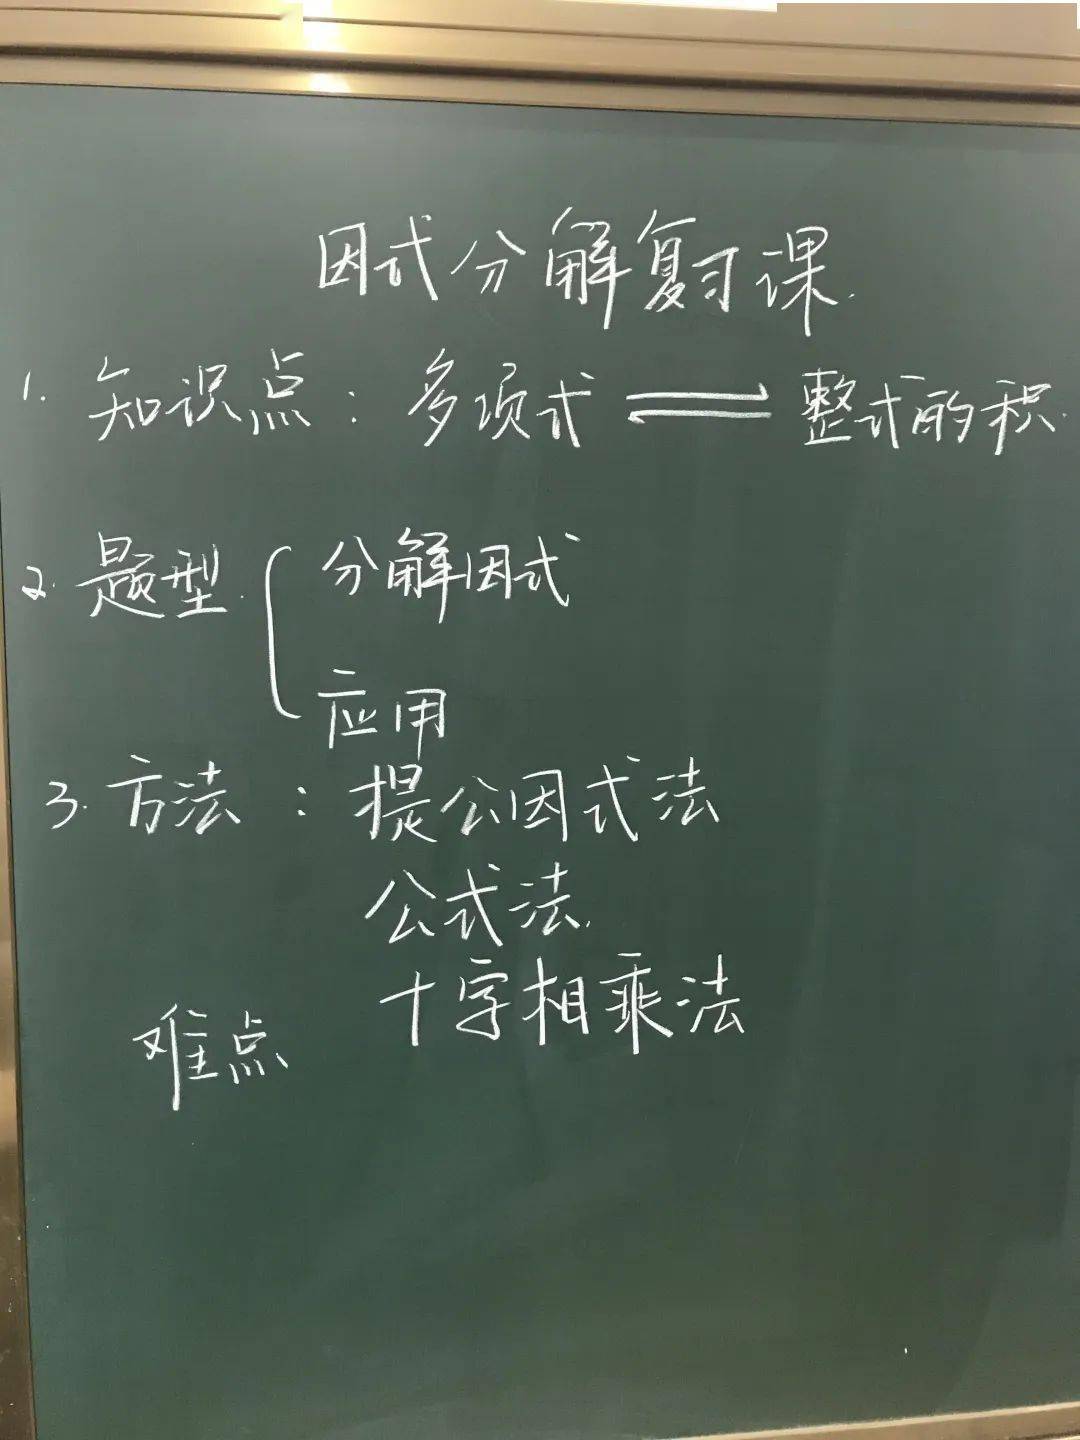 因式分解复习课.
1. 知识点：多项式 ⇌ 整式的积.
2. 题型. { 分解因式
应用
3. 方法：提公因式法
公式法.
十字相乘法
难点